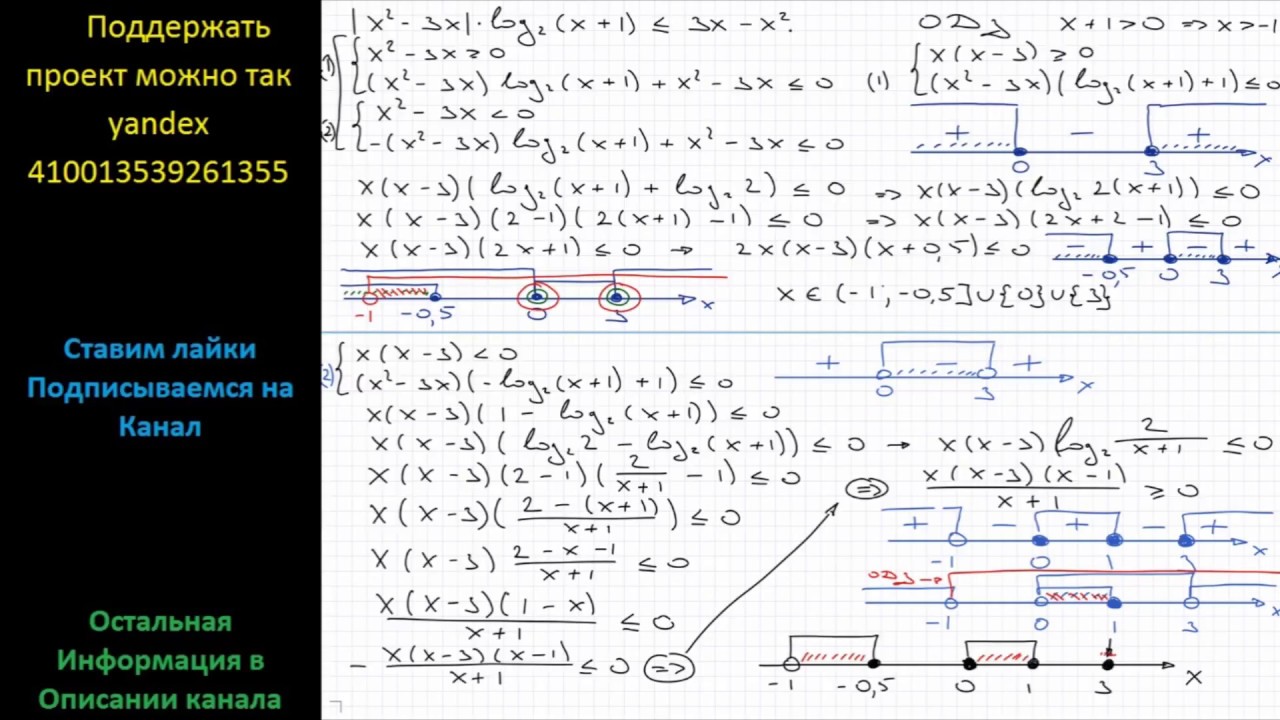 Поддержать
проект можно так
yandex
410013539261355
Ставим лайки
Подписываемся на
Канал
Остальная
Информация в
Описании канала
|x² - 3x| · log₂(x+1) ≤ 3x - x².
ОДЗ x+1>0 ⇒ x>-1
(1) { x² - 3x ≥ 0
(x² - 3x) log₂(x+1) + x² - 3x ≤ 0
(2) { x² - 3x < 0
-(x² - 3x) log₂(x+1) + x² - 3x ≤ 0
(1) { x(x-3) ≥ 0
(x² - 3x)(log₂(x+1)+1) ≤ 0
+ - +
0 3 x
x(x-3)(log₂(x+1) + log₂2) ≤ 0 ⇒ x(x-3)(log₂ 2(x+1)) ≤ 0
x(x-3)(2-1)(2(x+1)-1) ≤ 0 ⇒ x(x-3)(2x+2-1) ≤ 0
x(x-3)(2x+1) ≤ 0 → 2x(x-3)(x+0,5) ≤ 0
- + - +
-0,5 0 3
-1 -0,5 0 3 x
x ∈ (-1; -0,5]∪{0}∪{3}
(2) { x(x-3) < 0
(x²-3x)(-log₂(x+1)+1) ≤ 0
+ - +
0 3 x
x(x-3)(1 - log₂(x+1)) ≤ 0
x(x-3)(log₂2 - log₂(x+1)) ≤ 0 → x(x-3) log₂ 2/(x+1) ≤ 0
x(x-3)(2-1)(2/(x+1) - 1) ≤ 0
⇒ x(x-3)(x-1)/(x+1) ≥ 0
x(x-3)((2-(x+1))/(x+1)) ≤ 0
x(x-3) (2-x-1)/(x+1) ≤ 0
x(x-3)(1-x)/(x+1) ≤ 0
- x(x-3)(x-1)/(x+1) ≤ 0 ⇒
+ - + - +
-1 0 1 3 x
ОДЗ →
-1 0 1 3 x
-1 -0,5 0 1 3 x